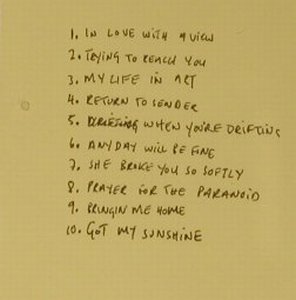 1. IN LOVE WITH A VIEW
2. TRYING TO REACH YOU
3. MY LIFE IN ART
4. RETURN TO SENDER
5. WHEN YOU'RE DRIFTING
6. ANYDAY WILL BE FINE
7. SHE BROKE YOU SO SOFTLY
8. PRAYER FOR THE PARANOID
9. BRINGIN ME HOME
10. GOT MY SUNSHINE